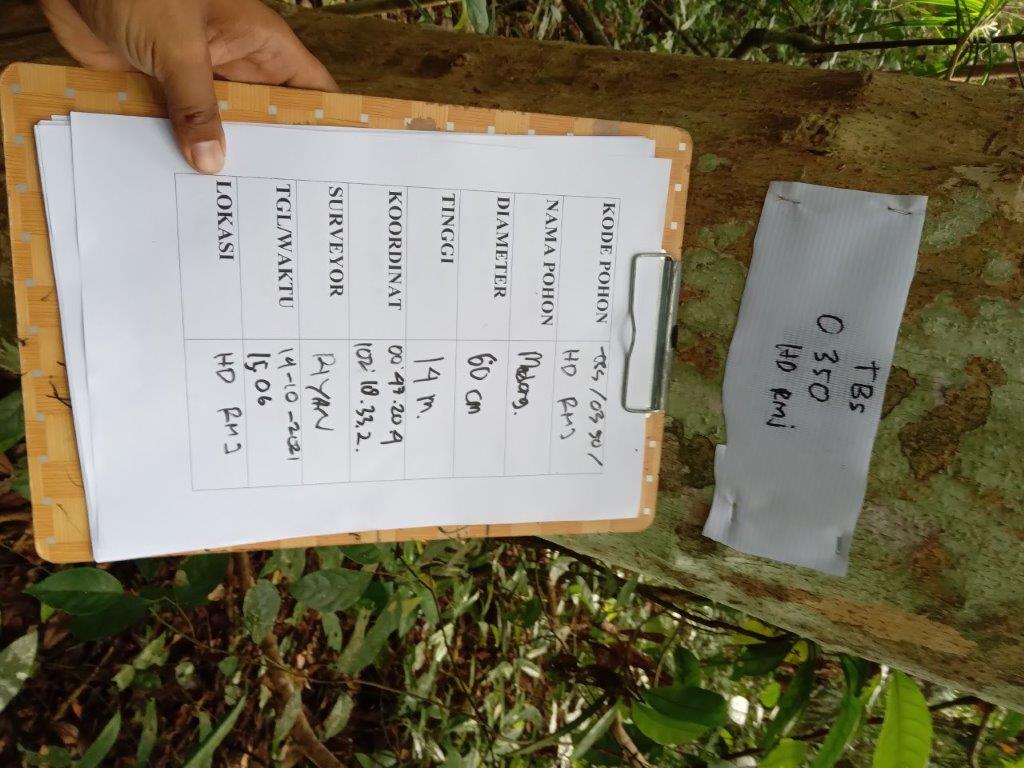 TBS
0 350
HD RMJ
KODE POHON
TBS / 0350 /
HD RMJ
NAMA POHON
Medang.
DIAMETER
60 cm
TINGGI
14 m.
KOORDINAT
00°47.20.9
102°18.33.2.
SURVEYOR
RIYAN
TGL/WAKTU
14-10-2021
15.06
LOKASI
HD RMJ